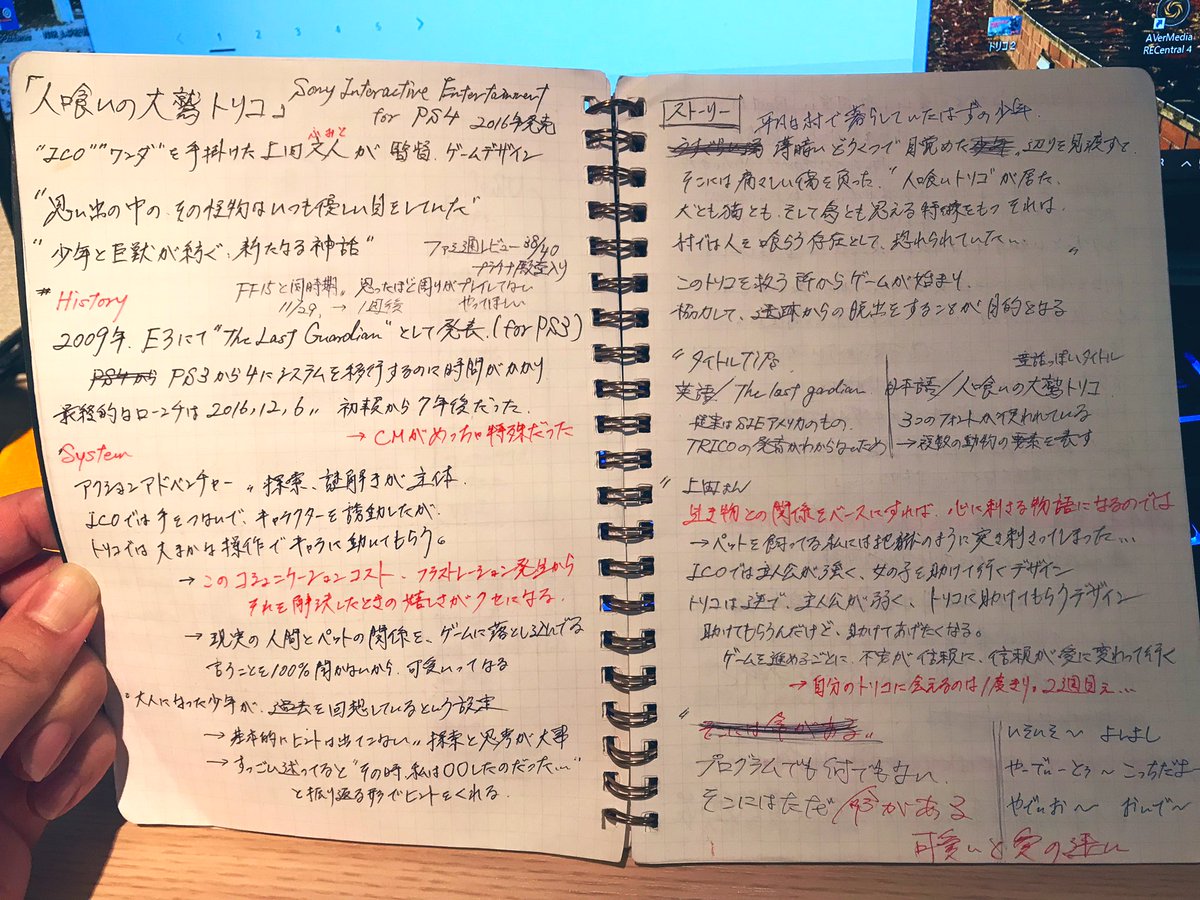 1 2 3 4 5
トリコ2
AVerMedia
RECentral 4
「人喰いの大鷲トリコ」 Sony Interactive Entertainment
for PS4 2016年発売
ふみと
"ICO""ワンダ"を手掛けた上田文人が監督.ゲームデザイン
"思い出の中の、その怪物はいつも優しい目をしていた"
"少年と巨獣が紡ぐ、新たなる神話"
ファミ通レビュー 38/40
プラチナ殿堂入り
# History
FF15と同時期。思ったほど周りがプレイしてない
11/29. → 1週後 やってほしい
2009年. E3にて"The Last Guardian"として発表.(for PS3)
PS4から PS3から4にシステムを移行するのに時間がかかり
最終的なローンチは2016,12,6〃 初報から7年後だった.
→ CMがめっちゃ特殊だった
System
アクションアドベンチャー〃探索、謎解きが主体.
ICOでは手をつないで、キャラクターを誘動したが、
トリコでは大まかな操作でキャラに動いてもらう。
→ このコミュニケーションコスト、フラストレーション発生から
それを解決したときの嬉しさがクセになる.
→ 現実の人間とペットの関係を、ゲームに落とし込んでる
言うことを100%聞かないから、可愛いってなる
"大人になった少年が、過去を回想しているという設定
→ 基本的にヒントは出てこない〃探索と思考が大事
→ すっごい迷ってると"その時、私は○○したのだった…"
と振り返る形でヒントをくれる.
ストーリー
平和な村で暮らしていたはずの少年.
薄暗いどうくつで目覚めた少年。辺りを見渡すと
そこには痛々しい傷を負った"人喰いトリコ"が居た.
犬とも猫とも、そして鳥とも思える特徴をもつそれは、
村では人を喰らう存在として、恐れられていた…〃
このトリコを救う所からゲームが始まり
協力して、遺跡からの脱出をすることが目的となる
"タイトル
童話っぽいタイトル
英語/The last gadian
日本語/人喰いの大鷲トリコ
SIEアメリカのもの.
3つのフォントが使われている
TRICOの発音がわからないため
→ 複数の動物の要素を表す
"上田さん
生き物との関係をベースにすれば、心に刺さる物語になるのでは
→ ペットを飼ってる私には地獄のように突き刺さってしまった…
ICOでは主人公が強く、女の子を助けて行くデザイン
トリコは逆で、主人公が弱く、トリコに助けてもらうデザイン
助けてもらうんだけど、助けてあげたくなる。
ゲームを進めるごとに、不安が信頼に、信頼が愛に変わって行く
→ 自分のトリコに会えるのは1度きり。2週目え…
" そこには命がある〃
プログラムでも何でもない
そこにはただ命がある
いそいそ〜 よしよし
やーでぃーとぅ〜 こっちだよー
やでぃお〜 おいで〜
可愛いと愛の違い